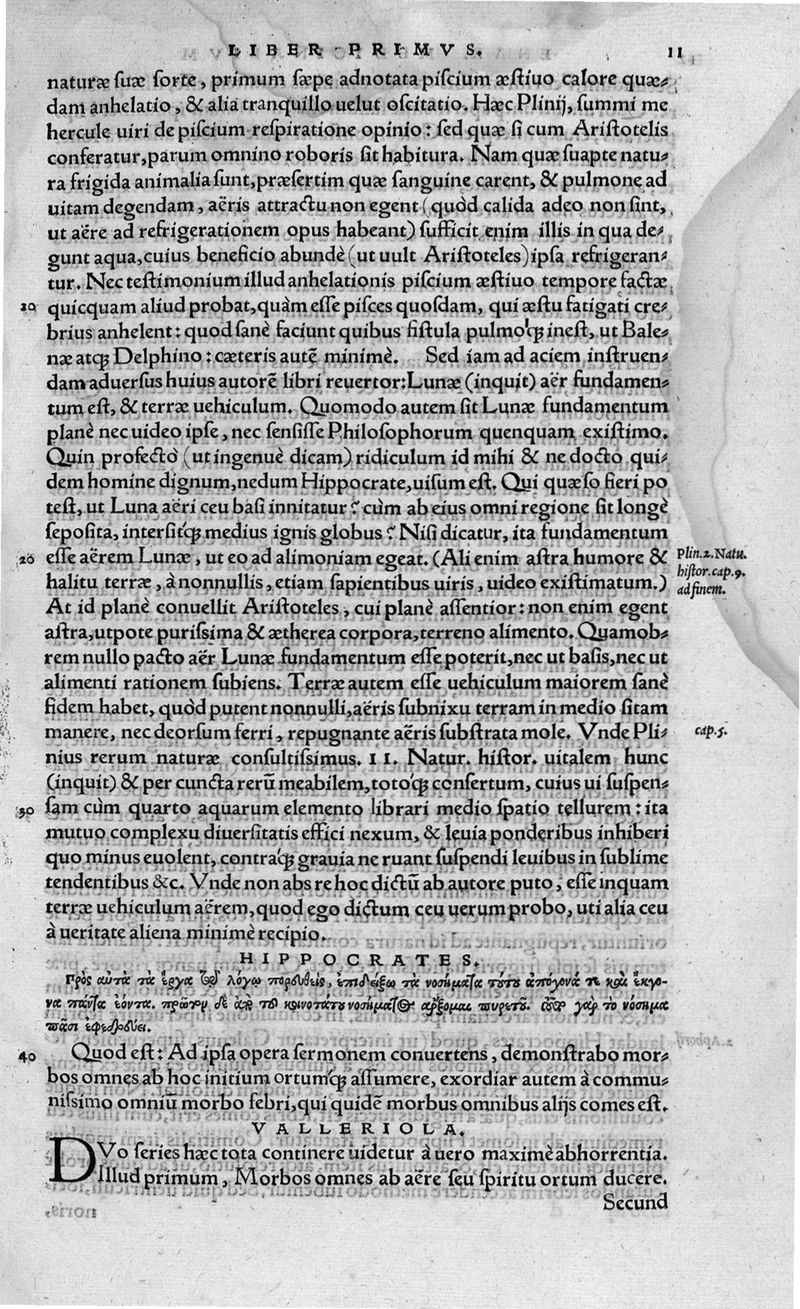 LIBER PRIMVS. 11
naturæ suæ sorte, primum sæpe adnotata piscium æstiuo calore quæ-
dam anhelatio, & alia tranquillo uelut oscitatio. Hæc Plinij, summi me
hercule uiri de piscium respiratione opinio: sed quæ si cum Aristotelis
conferatur, parum omnino roboris sit habitura. Nam quæ suapte natu-
ra frigida animalia sunt, præsertim quæ sanguine carent, & pulmone ad
uitam degendam, aëris attractu non egent (quòd calida adeo non sint,
ut aëre ad refrigerationem opus habeant) sufficit enim illis in qua de-
gunt aqua, cuius beneficio abundè (ut uult Aristoteles) ipsa refrigeran-
tur. Nec testimonium illud anhelationis piscium æstiuo tempore factæ
10 quicquam aliud probat, quàm esse pisces quosdam, qui æstu fatigati cre-
brius anhelent: quod sanè faciunt quibus fistula pulmoq́; inest, ut Bale-
næ atq; Delphino: cæteris autē minimè. Sed iam ad aciem instruen-
dam aduersus huius autorē libri reuertor: Lunæ (inquit) aër fundamen-
tum est, & terræ uehiculum. Quomodo autem sit Lunæ fundamentum
planè nec uideo ipse, nec sensisse Philosophorum quenquam existimo.
Quin profectò (ut ingenuè dicam) ridiculum id mihi & ne docto qui-
dem homine dignum, nedum Hippocrate, uisum est. Qui quæso fieri po
test, ut Luna aëri ceu basi innitatur? cùm ab eius omni regione sit longè
seposita, intersitq́; medius ignis globus? Nisi dicatur, ita fundamentum
20 esse aërem Lunæ, ut eo ad alimoniam egeat. (Ali enim astra humore & Plin. 2. Natu.
halitu terræ, à nonnullis, etiam sapientibus uiris, uideo existimatum.) histor. cap. 9.
At id planè conuellit Aristoteles, cui planè assentior: non enim egent ad finem.
astra, utpote purissima & ætherea corpora, terreno alimento. Quamob-
rem nullo pacto aër Lunæ fundamentum esse poterit, nec ut basis, nec ut
alimenti rationem subiens. Terræ autem esse uehiculum maiorem sanè
fidem habet, quòd putent nonnulli, aëris subnixu terram in medio sitam
manere, nec deorsum ferri, repugnante aëris substrata mole. Vnde Pli- cap. 5.
nius rerum naturæ consultissimus. 11. Natur. histor. uitalem hunc
(inquit) & per cuncta rerū meabilem, totoq́; consertum, cuius ui suspen-
30 sam cùm quarto aquarum elemento librari medio spatio tellurem: ita
mutuo complexu diuersitatis effici nexum, & leuia ponderibus inhiberi
quo minus euolent, contraq́; grauia ne ruant suspendi leuibus in sublime
tendentibus &c. Vnde non abs re hoc dictū ab autore puto, esse inquam
terræ uehiculum aërem, quod ego dictum ceu uerum probo, uti alia ceu
à ueritate aliena minimè recipio.
HIPPOCRATES.
Πρὸς αὐτὰ τὰ ἔργα τῷ λόγῳ πορευθεὶς, ἐπιδείξω τὰ νοσήματα τούτου ἀπόγονά τε καὶ ἔκγο-
να πάντα ἐόντα. πρῶτον δὲ ἀπὸ τοῦ κοινοτάτου νοσήματος ἄρξομαι πυρετοῦ. τοῦτο γὰρ τὸ νόσημα
πᾶσι ἐφεδρεύει.
40 Quod est: Ad ipsa opera sermonem conuertens, demonstrabo mor-
bos omnes ab hoc initium ortumq́; assumere, exordiar autem à commu-
nissimo omniū morbo febri, qui quidē morbus omnibus alijs comes est.
VALLERIOLA.
DVo series hæc tota continere uidetur à uero maximè abhorrentia.
Illud primum, Morbos omnes ab aëre seu spiritu ortum ducere.
Secund